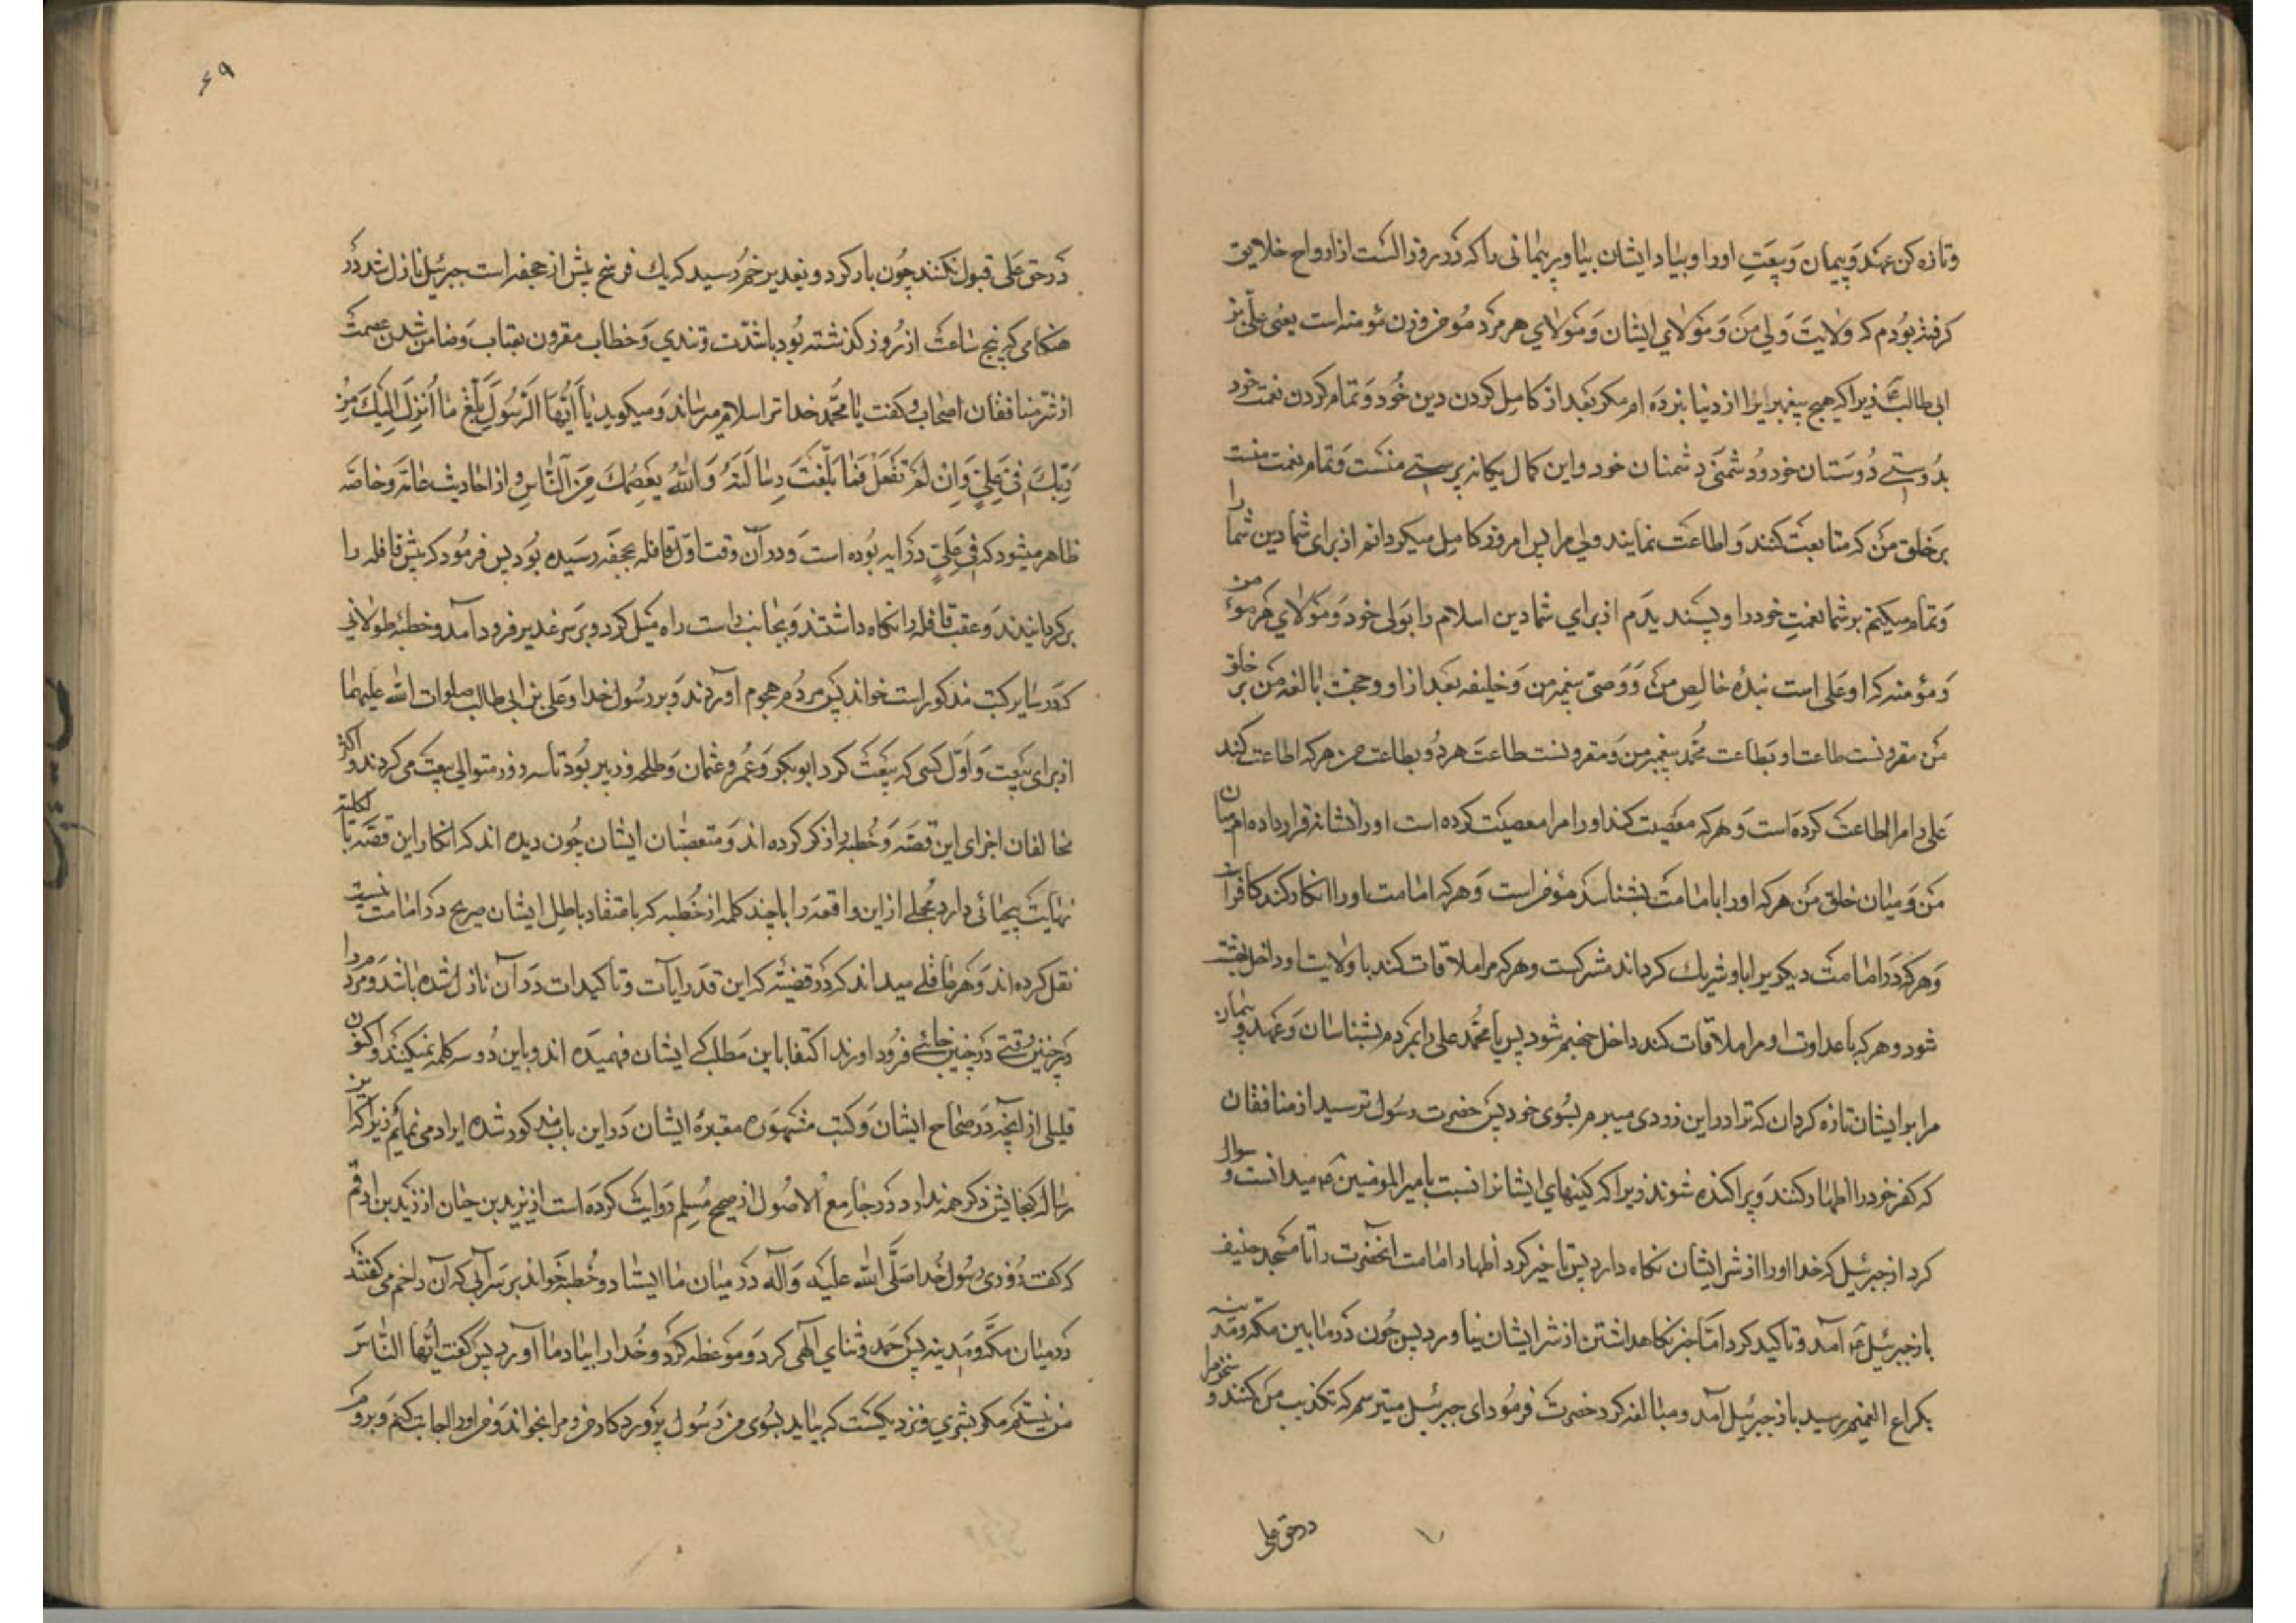 وتازه کن عهد و پیمان و بیعت اورا و بیاد ایشان بیاور پیمانی را که در روز الست از ارواح خلایق
کرفته بودم که ولایت ولی من و مولای ایشان و مولای هر مرد مؤمن و زن مؤمنه است یعنی علی بن
ابی طالب ع زیرا که هیچ پیغمبر ایرا از دنیا نبرده ام مکر بعد از کامل کردن دین خود و تمام کردن نعمت خود
بدوستی دوستان خود و دشمنی دشمنان خود و این کمال یکانه پرستی منست و تمام نعمت منست
بر خلق من که متابعت کنند و اطاعت نمایند ولی مرا پس امروز کامل میکردانم از برای شما دین شما را
و تمام میکنم بر شما نعمت خود را و پسندیدم از برای شما دین اسلام را بولی خود و مولای هر مؤمن
و مؤمنه که او علی است بنده خالص من و وصی پیغمبر من و خلیفه بعد از او و حجت بالغه من بر خلق
من مقرونست طاعت او بطاعت محمد پیغمبر من و مقرونست طاعت هر دو بطاعت من هر که اطاعت کند
علی را مرا اطاعت کرده است و هر که معصیت کند اورا مرا معصیت کرده است اورا نشانه قرار داده ام میان
من و میان خلق من هر که اورا بامامت بشناسد مؤمن است و هر که امامت اورا انکار کند کافر است
و هر که در امامت دیکریرا باو شریک کرداند مشرکست و هر که مرا ملاقات کند با ولایت او داخل بهشت
شود و هر که با عداوت او مرا ملاقات کند داخل جهنم شود پس یا محمد علی را بمردم بشناسان و عهد و پیمان
مرا بر ایشان تازه کردان که ترا در این زودی میبرم بسوی خود پس حضرت رسول ترسید از منافقان
که کفر خود را اظهار کنند و پراکنده شوند زیرا که کینهای ایشانرا نسبت بامیر المومنین میدانست و سوال
کرد از جبرئیل که خدا اورا از شر ایشان نکاه دارد پس تاخیر کرد اظهار امامت انحضرت را تا مسجد خیف
باز جبرئیل آمد و تاکید کرد اما خبر نکاهداشتن از شر ایشان نیاورد پس چون در مابین مکه و مدینه
بکراع الغمیم رسید باز جبرئیل آمد و مبالغه کرد حضرت فرمود ای جبرئیل میترسم که تکذیب من کنند و سخن مرا
در حق علی
۶۹
در حق علی قبول نکنند چون بار کرد و بغدیر خم رسید که یک فرسخ پیش از جحفه است جبرئیل نازل شد در
هنکامی که پنج ساعت از روز کذشته بود باشدت و تندی و خطاب مقرون بعتاب و ضامن شدن عصمت
از شر منافقان اصحاب و کفت یا محمد خدا ترا سلام میرساند و میکوید یا أیها الرسول بلغ ما أنزل إلیک من
ربک فی علی و إن لم تفعل فما بلغت رسالته و الله یعصمک من الناس و از احادیث عامه و خاصه
ظاهر میشود که فی علی در آیه بوده است و در آن وقت اول قافله بجحفه رسیده بود پس فرمود که پیش قافله را
برکردانیدند و عقب قافله را نکاه داشتند و بجانب راست راه میل کرد و بر سر غدیر فرود آمد و خطبه طولانی
که در سایر کتب مذکور است خواند پس مردم هجوم آوردند و بر رسول خدا و علی بن ابی طالب صلوات الله علیهما
از برای بیعت و اول کسی که بیعت کرد ابوبکر و عمر و عثمان و طلحه و زبیر بود تا سه روز متوالی بیعت می کردند و اکثر
مخالفان اجزای این قصه و خطبه را ذکر کرده اند و متعصبان ایشان چون دیده اند که انکار این قصه بالکلیه
نهایت بیحیائی دارد مجملی از این واقعه را با چند کلمه از خطبه که باعتقاد باطل ایشان صریح در امامت نیست
نقل کرده اند و هر عاقلی میداند که در قضیه که این قدر آیات و تاکیدات در آن نازل شده باشد و مردم را
در چنین وقتی در چنین جائی فرود اورند اکتفا باین مطلب که ایشان فهمیده اند و باین دو سه کلمه نمیکنند و اکنون
قلیلی از آنچه در صحاح ایشان و کتب مشهوره معتبره ایشان در این باب مذکور شده ایراد می نمایم زیرا که این
رساله کنجایش ذکر همه ندارد در جامع الاصول از صحیح مسلم روایت کرده است از یزید بن حیان از زید بن ارقم
که کفت روزی رسول خدا صلی الله علیه و آله در میان ما ایستاد و خطبه خواند بر سر آبی که آن را خم می کفتند
در میان مکه و مدینه پس حمد و ثنای آلهی کرد و موعظه کرد و خدا را بیاد ما آورد پس کفت أیها الناس
من نیستم مکر بشری و نزدیکست که بیاید بسوی من رسول پروردکار من و مرا بخواند و من اورا اجابت کنم و بروم